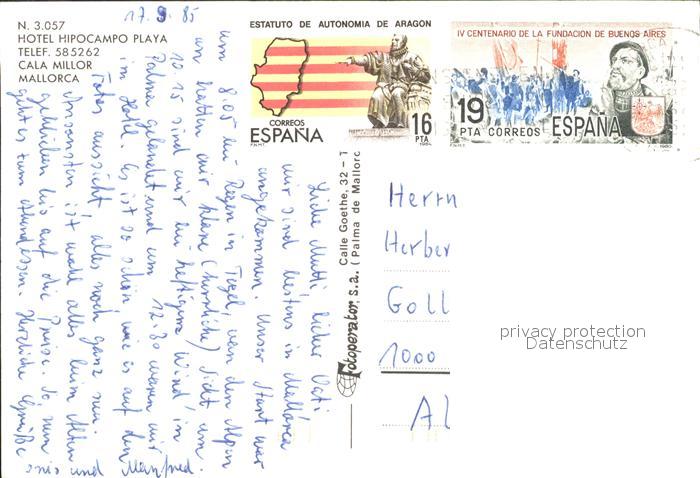 17.9.85
N. 3.057
HOTEL HIPOCAMPO PLAYA
TELEF. 585262
CALA MILLOR
MALLORCA
ESTATUTO DE AUTONOMIA DE ARAGON
CORREOS
ESPAÑA
16
PTA
F.N.M.T.
1984
IV CENTENARIO DE LA FUNDACION DE BUENOS AIRES
19
PTA CORREOS ESPAÑA
F.N.M.T.
1980
Liebe Mutti, lieber Vati
wir sind bestens in Mallorca
angekommen. Unser Start war
um 8.05 im Regen in Tegel, von den Alpen
an hatten wir klare (herrliche) Sicht um
10.15 sind wir bei heftigem Wind in
Palma gelandet und um 12.30 waren wir
im Hotel. Es ist so schön wie es auf den
Fotos aussieht, alles noch ganz neu.
Ansonsten ist wohl alles beim Alten
geblieben bis auf die Preise. So, nun
geht es zum Abendessen. Herzliche Grüße
und Manfred.
Fotoperator, s.a.
Calle Goethe, 32 - 1
( Palma de Mallorc
Herrn
Herber
Goll
1000
Al
privacy protection
Datenschutz